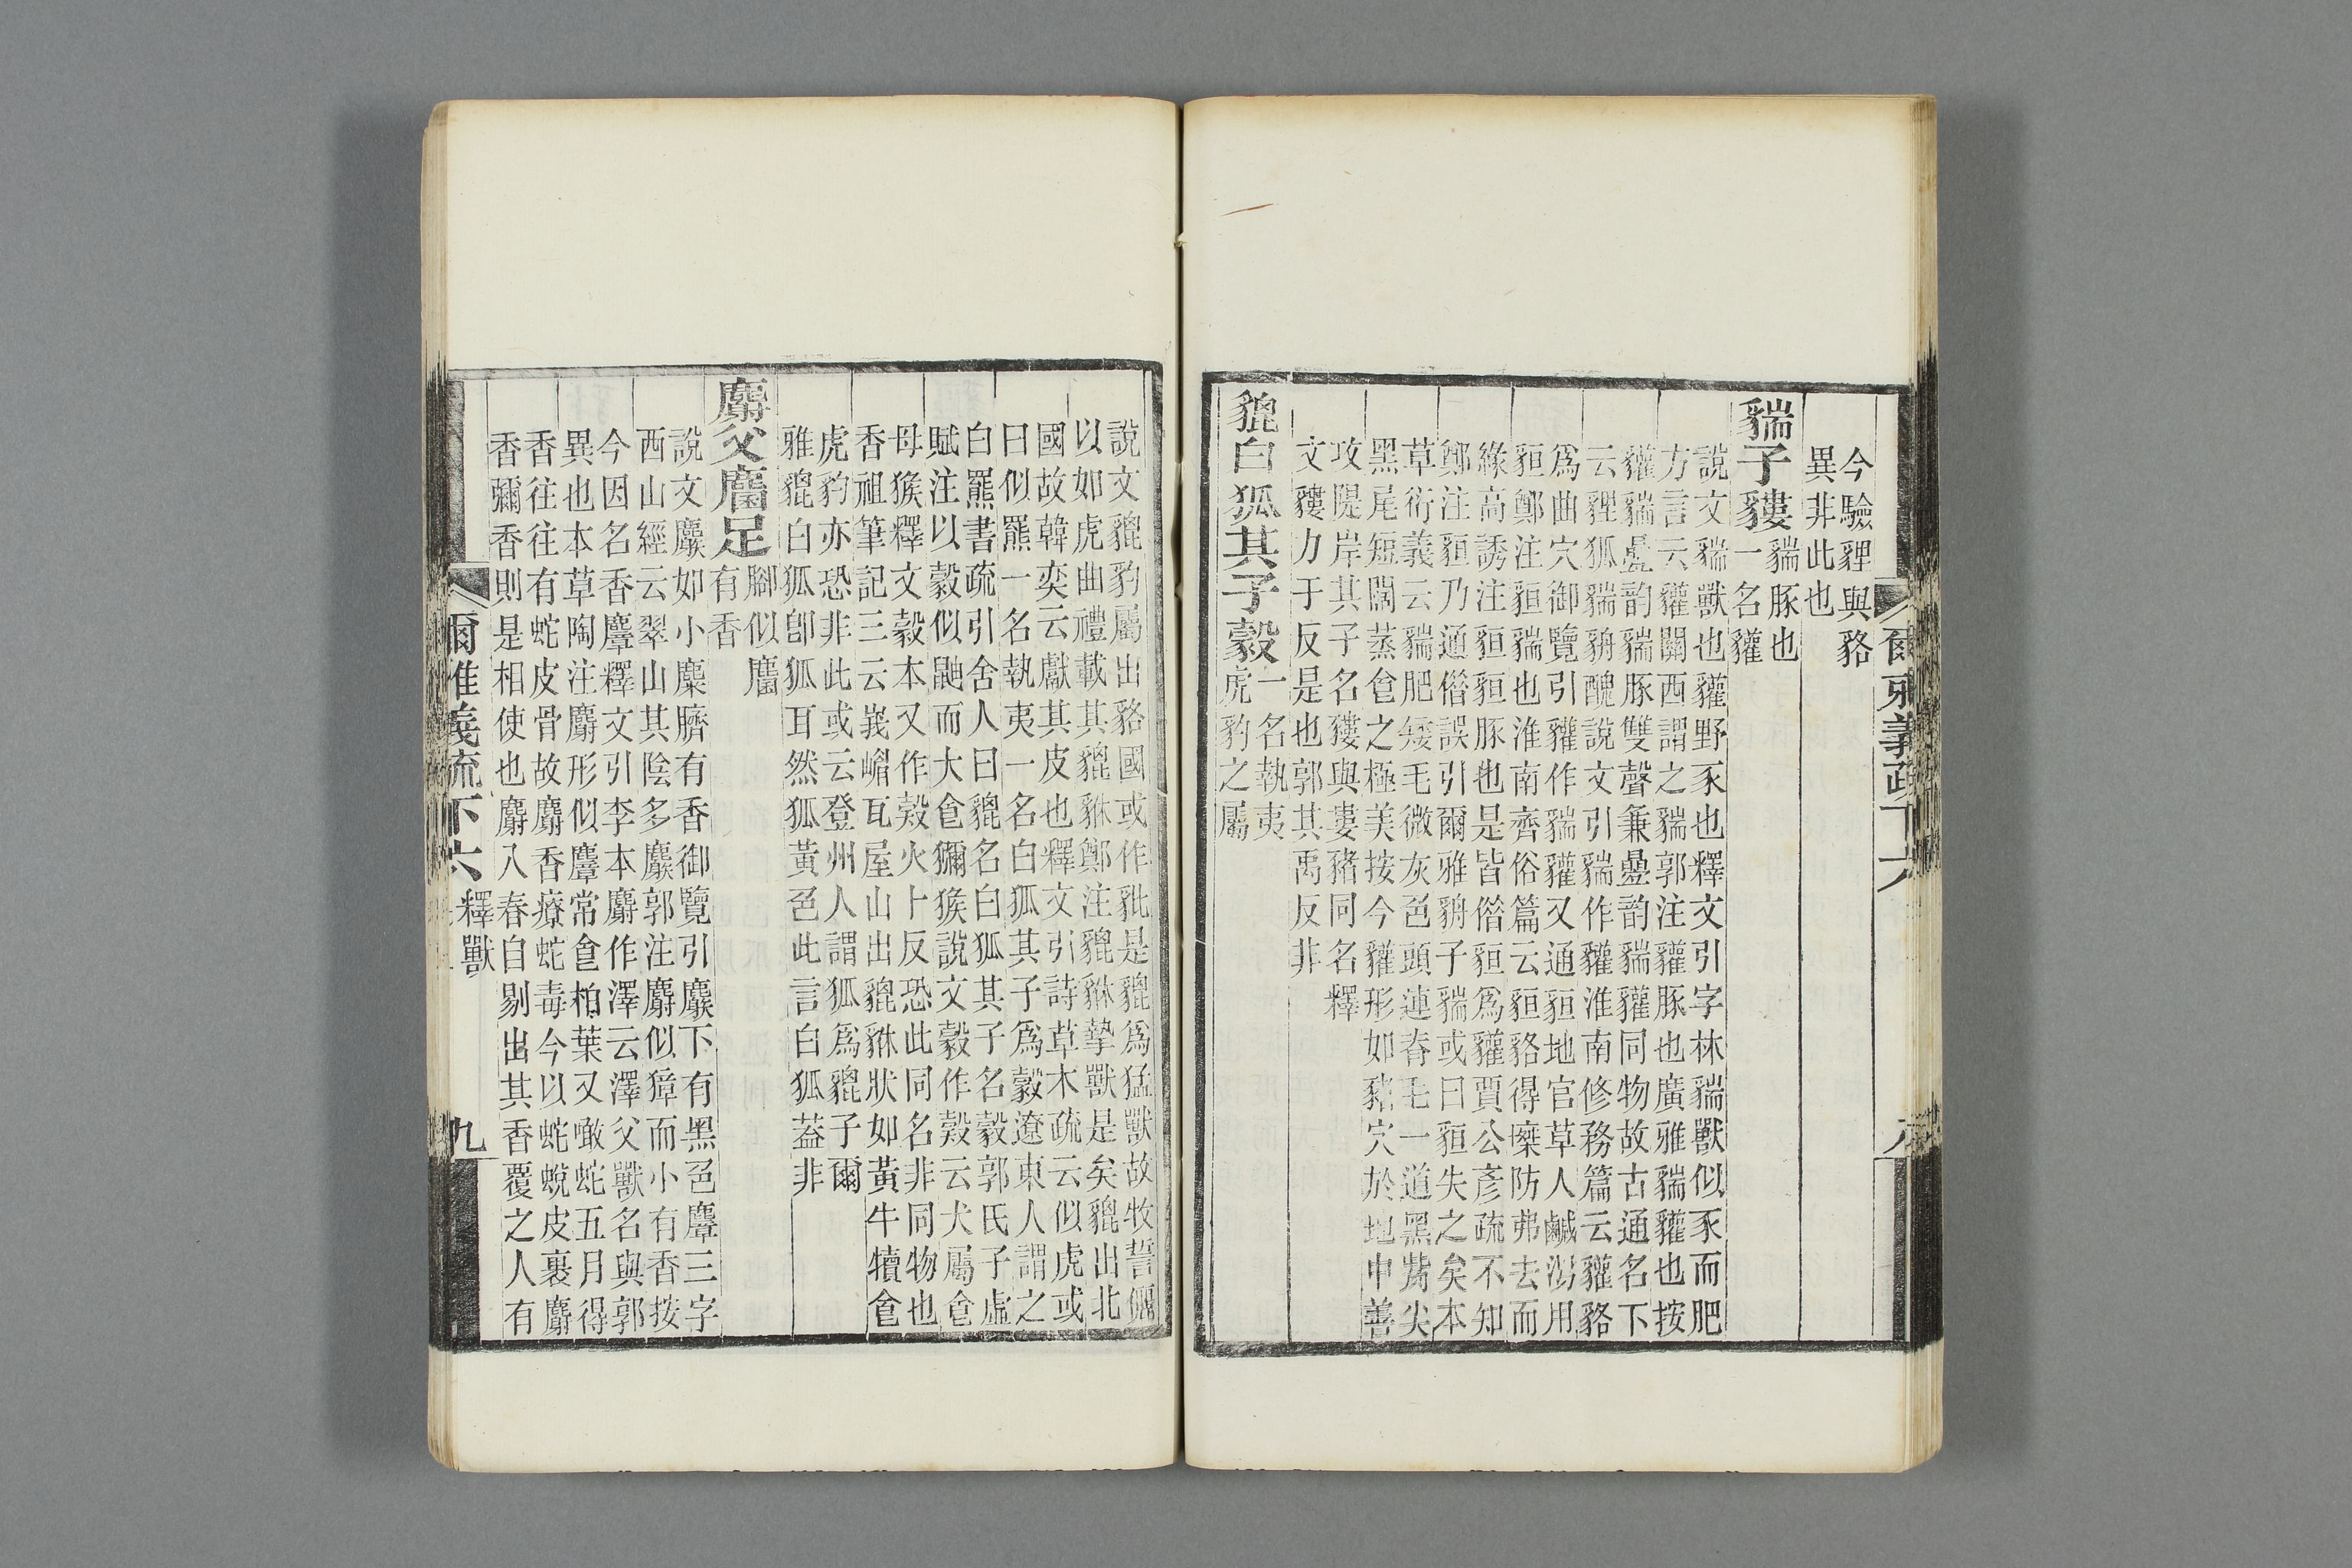 今驗貍與貉
異非此也
貒子貗貒豚也
一名貛
說文貒獸也貛野豕也釋文引字林貒獸似豕而肥
方言云貛關西謂之貒郭注貛豚也廣雅貒貛也按
貛貒疊韵貒豚雙聲兼疊韵貒貛同物故古通名下
云貍狐貒貈醜說文引貒作貛淮南修務篇云貛貉
爲曲穴御覽引貛作貒貛又通貆地官草人鹹潟用
貆鄭注貆貒也淮南齊俗篇云貆貉得㙛防弗去而
緣高誘注貆貆豚也是皆僭貆爲貛賈公彥疏不知
鄭注貆乃通僭誤引爾雅貈子貒或曰貆失之矣本
草衍義云貒肥矮毛微灰色頭連脊毛一道黑觜尖
黑尾短闊蒸食之極美按今貛形如豬穴於地中善
攻隄岸其子名貗與婁豬同名釋
文貗力于反是也郭其禹反非
貔白狐其子縠一名執夷
虎豹之屬
爾雅義疏下六
八
說文貔豹屬出貉國或作豼是貔爲猛獸故牧誓偭
以如虎曲禮載其貔貅鄭注貔貅摯獸是矣貔出北
國故韓奕云獻其皮也釋文引詩草木疏云似虎或
曰似羆一名執夷一名白狐其子爲縠遼東人謂之
白羆書疏引舍人曰貔名白狐其子名縠郭氏子虛
賦注以縠似鼬而大食獼猴說文縠作㺉云犬屬食
母猴釋文縠本又作㺉火卜反恐此同名非同物也
香祖筆記三云峩嵋瓦屋山出貔貅狀如黃牛犢食
虎豹亦恐非此或云登州人謂狐爲貔子爾
雅貔白狐卽狐耳然狐黃色此言白狐葢非
麝父麕足腳似麕
有香
說文麝如小麋臍有香御覽引麝下有黑色麞三字
西山經云翠山其陰多麝郭注麝似獐而小有香按
今因名香麞釋文引李本麝作澤云澤父獸名與郭
異也本草陶注麝形似麞常食柏葉又噉蛇五月得
香往往有蛇皮骨故麝香療蛇毒今以蛇蛻皮裹麝
香彌香則是相使也麝入春自剔出其香覆之人有
爾雅義疏下六 釋獸
九